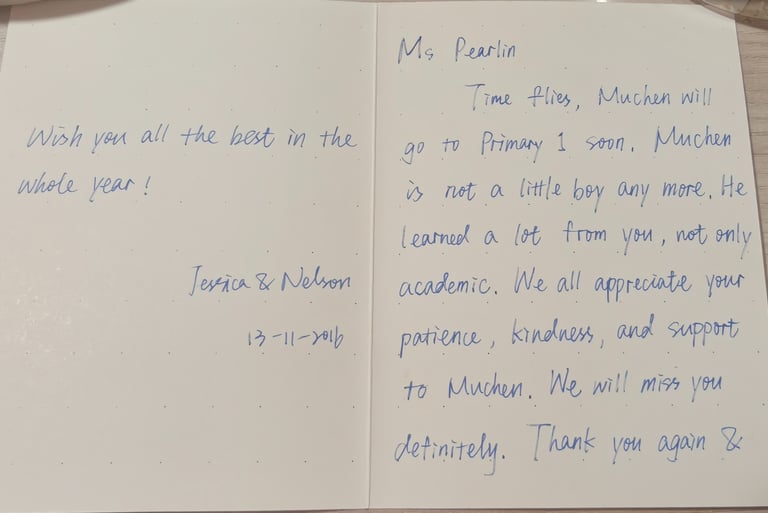 Ms Pearlin
Time flies, Muchen will
go to Primary 1 soon. Muchen
is not a little boy any more. He
learned a lot from you, not only
academic. We all appreciate your
patience, kindness, and support
to Muchen. We will miss you
definitely. Thank you again &
Wish you all the best in the
whole year!
Jessica & Nelson
13-11-2016